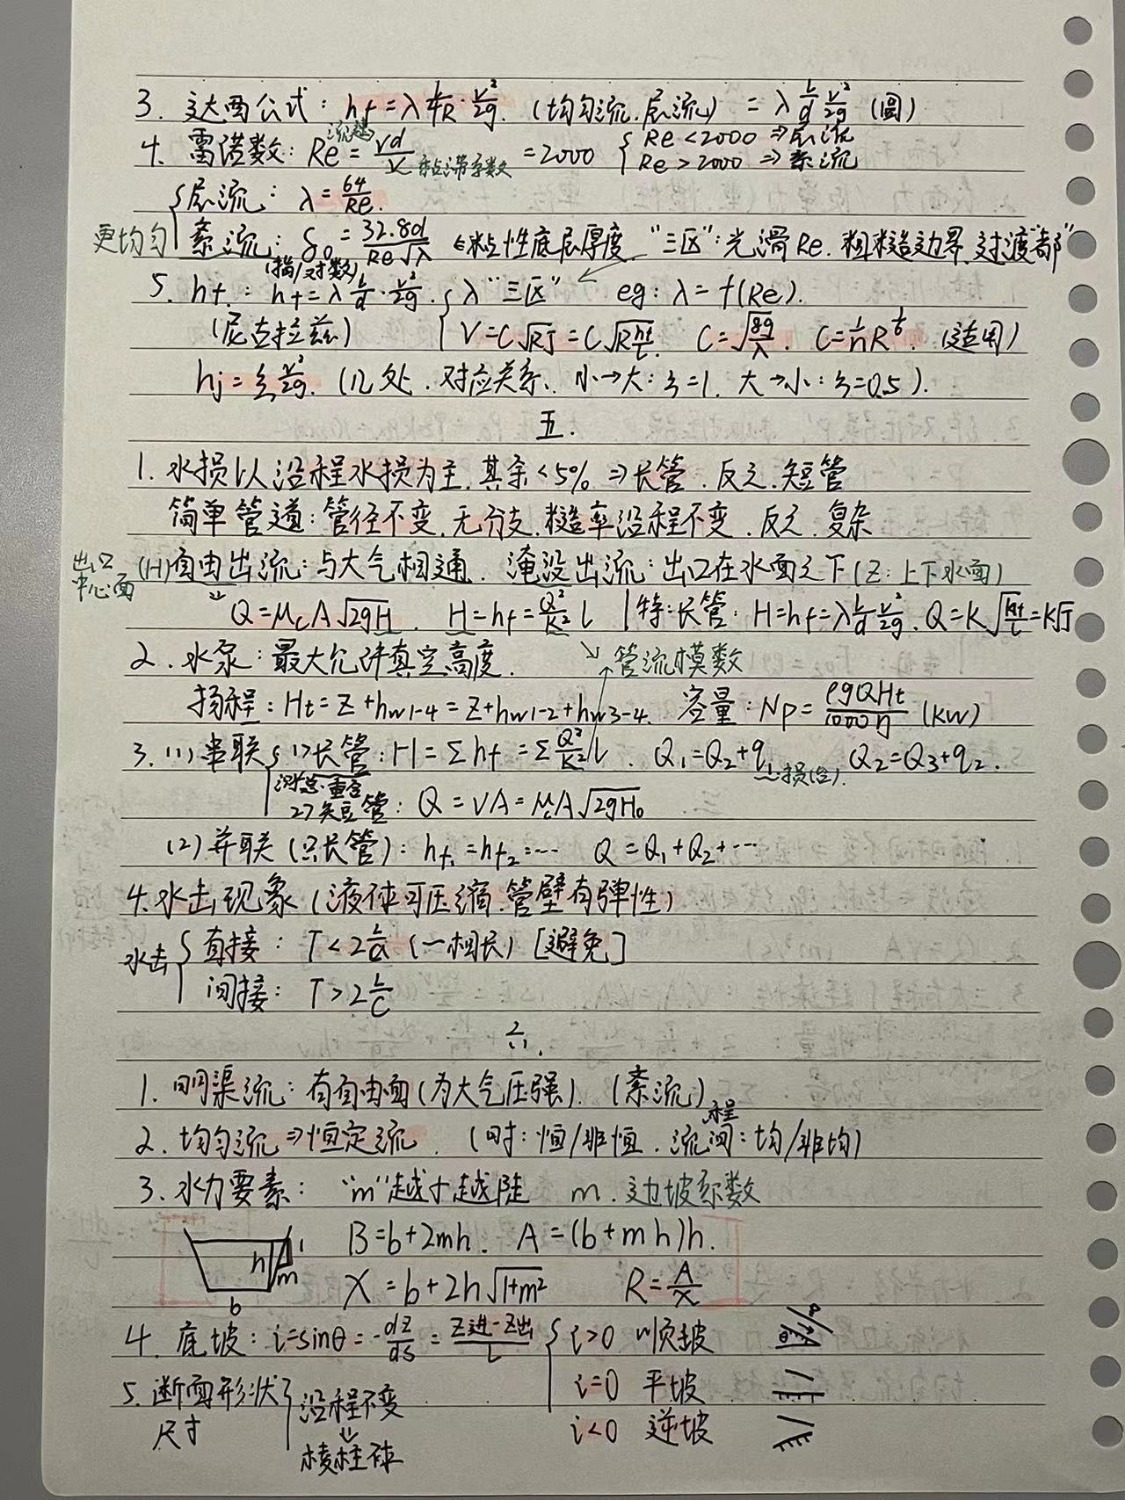 3. 达西公式: hf=λ l/4R · v²/2g. (均匀流.层流) = λ l/d v²/2g (圆)
4. 雷诺数: Re = vd/ν 粘滞系数 =2000 { Re<2000 ⇒层流
流速
Re>2000 ⇒ 紊流
{层流: λ=64/Re.
更均匀 紊流: δ₀=32.8d/Re√λ ←粘性底层厚度 "三区": 光滑Re. 粗糙边界 过渡"都"
(指/对数)
5. hf: hf=λ l/d · v²/2g. {λ"三区" eg: λ=f(Re).
(尼古拉兹) V=C√RJ=C√R hf/l. C=√8g/λ. C=1/n R^1/6. (适用)
hj=ξ v²/2g. (几处.对应关系. 小→大:ξ=1. 大→小:ξ=0.5).
五.
1. 水损以沿程水损为主.其余<5% ⇒长管.反之.短管
简单管道:管径不变.无分支.糙率沿程不变.反之.复杂
出口中心面 (H)自由出流:与大气相通. 淹没出流:出口在水面之下(Z:上下水面)
Q=μcA√2gH. H=hf=Q²/K² l | 特:长管: H=hf=λ l/d v²/2g. Q=K√hf/l=K√J
2. 水泵:最大允许真空高度. 管流模数
扬程: Ht=Z+hw1-4=Z+hw1-2+hw3-4. 容量: Np=ρgQHt/1000η (KW)
3. (1) 串联 { 1>长管: H=Σhf=Σ Q²/K² l. Q₁=Q₂+q₁ Q₂=Q₃+q₂.
测总重合 损(含).
2>短管: Q=VA=μcA√2gH₀
(2)并联(只长管): hf₁=hf₂=··· Q=Q₁+Q₂+···
4.水击现象(液体可压缩.管壁有弹性)
水击 { 直接: T<2 l/a (一相长) [避免]
间接: T>2 L/C
六.
1. 明渠流:有自由面(为大气压强). (紊流)
2. 均匀流⇒恒定流 (时:恒/非恒.流程间:均/非均)
3. 水力要素: "m"越小越陡 m.边坡系数
B=b+2mh. A=(b+mh)h.
h 1 m b
χ=b+2h√1+m² R=A/χ
4. 底坡: i=sinθ=-dz/ds=Z进-Z出/L { i>0 顺坡
i=0 平坡
5. 断面形状 尺寸 { 沿程不变
i<0 逆坡
⇓
棱柱体